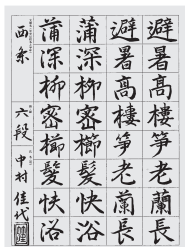 避暑高樓笋老蘭長
避暑高樓笋老蘭長
蒲深柳密櫛髮快浴
蒲深柳密櫛髮快浴
西条 六段 中村佳代